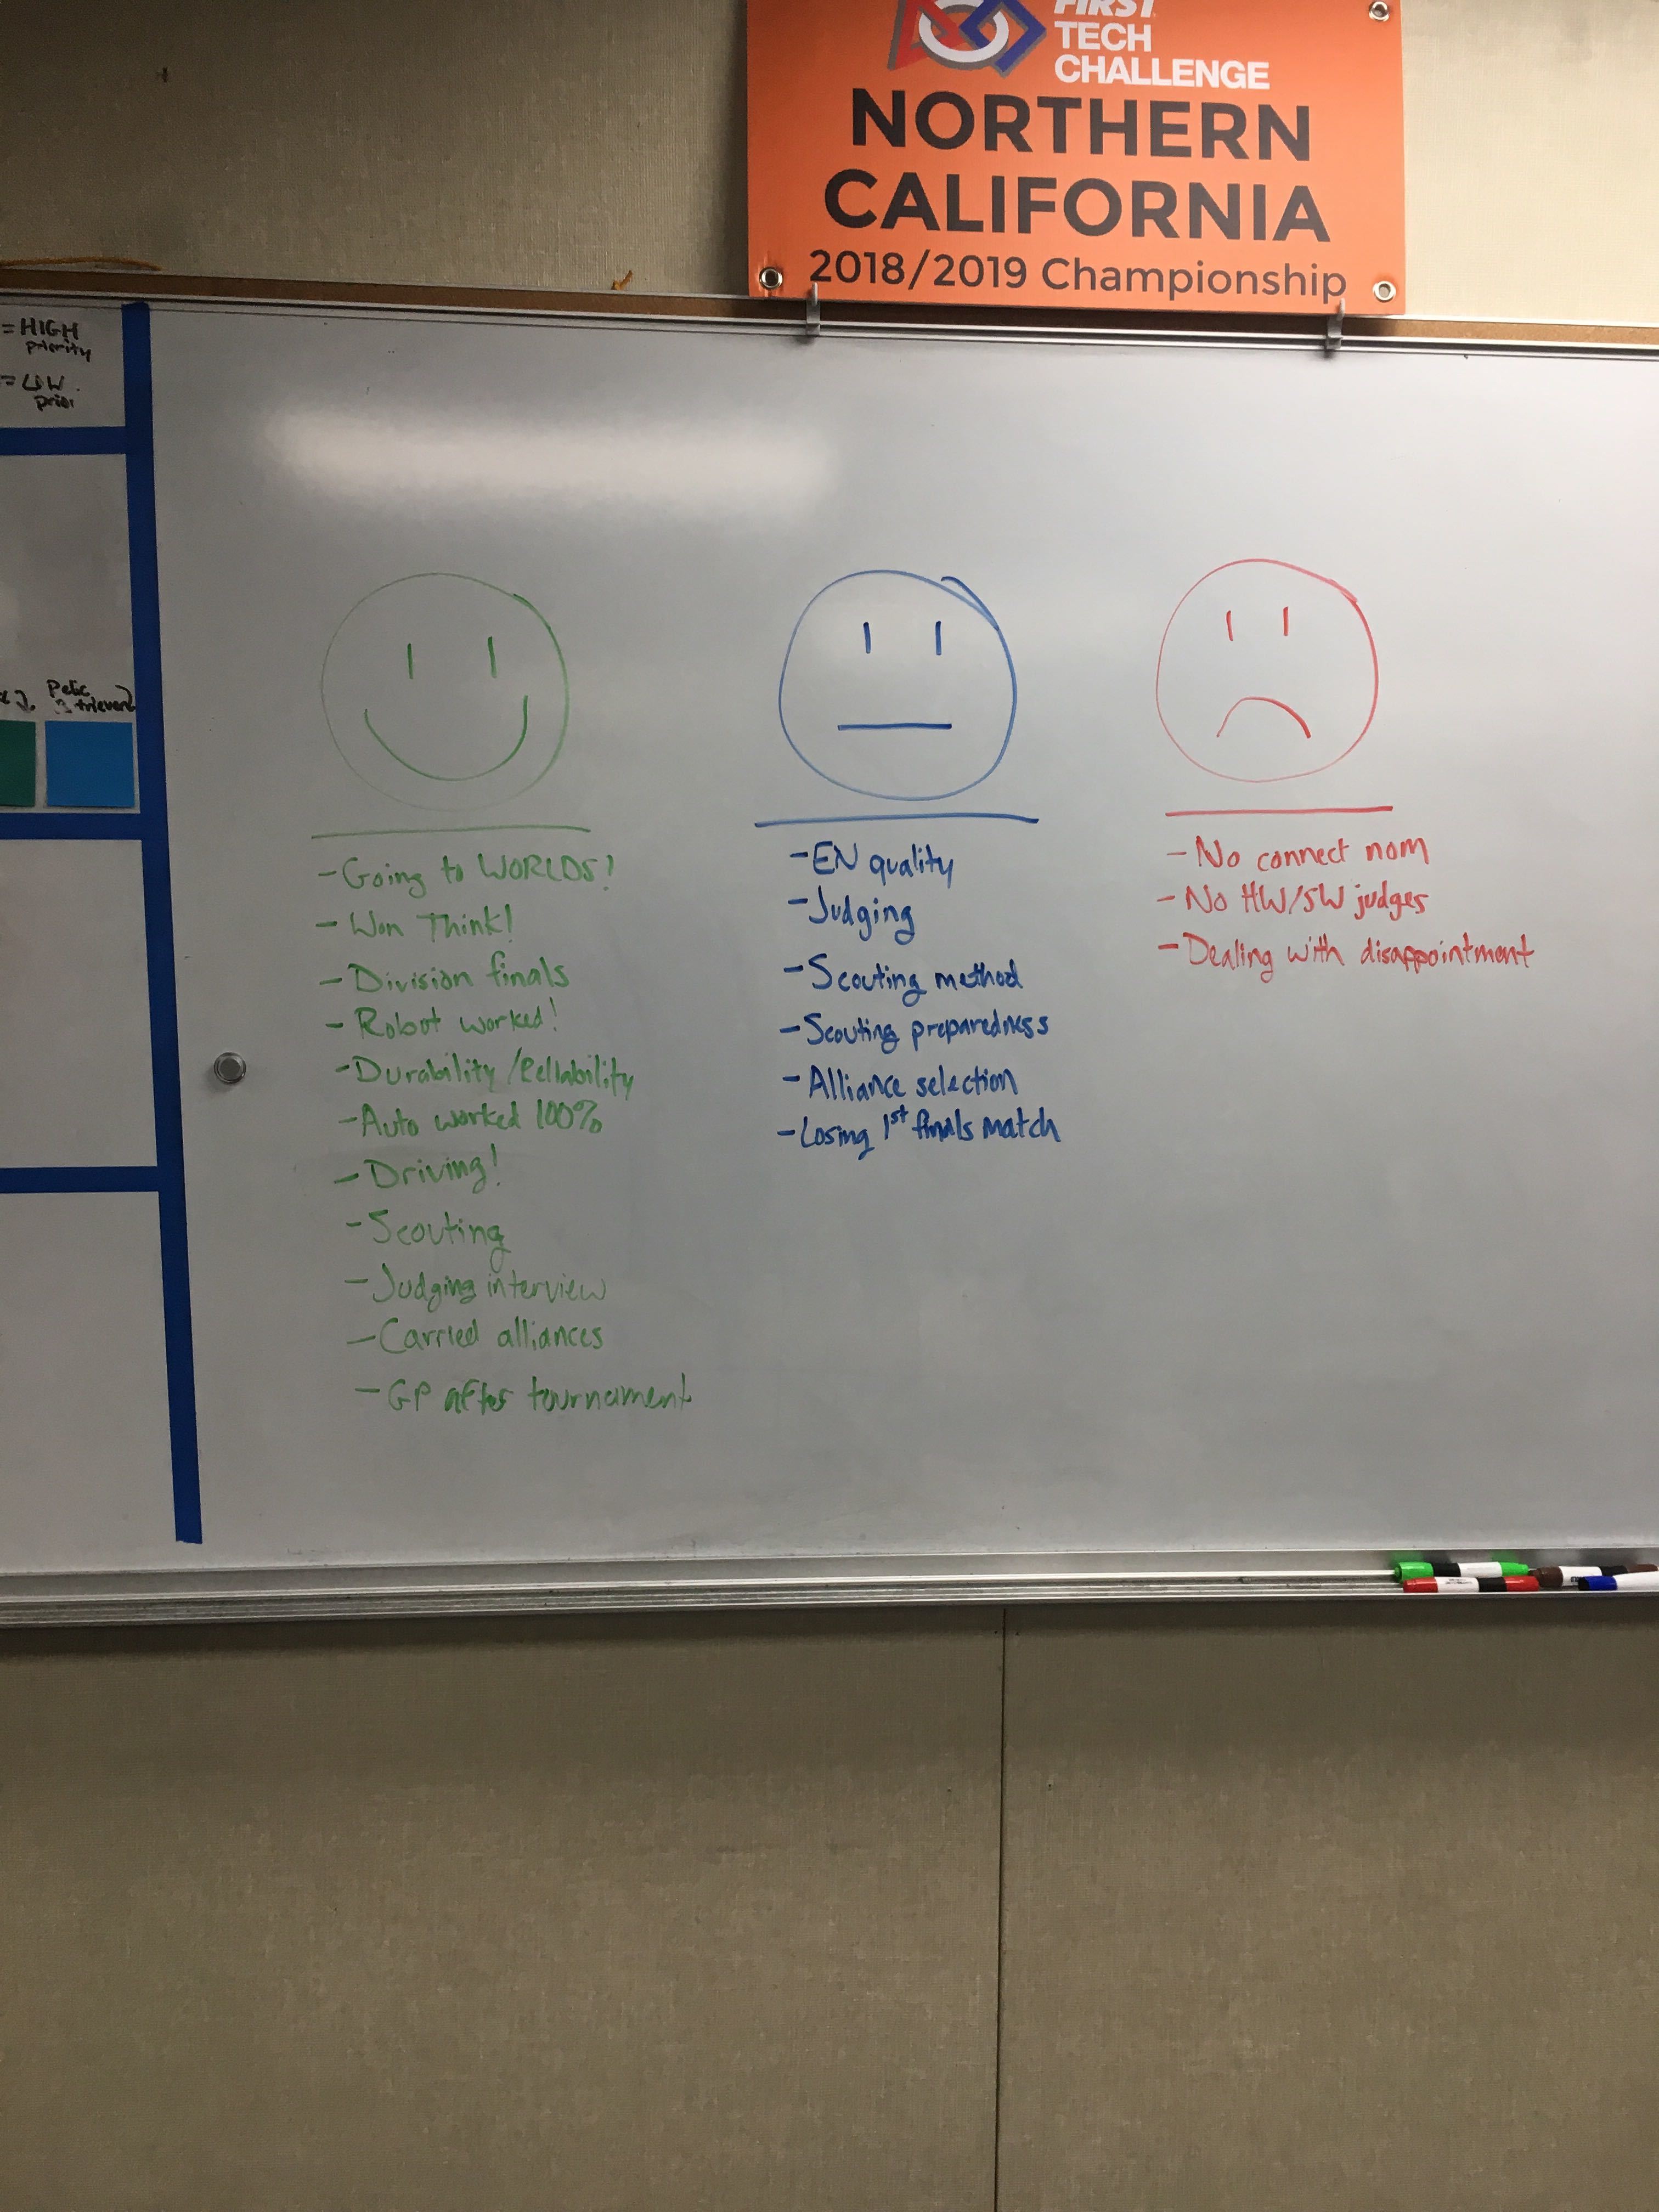 FIRST
TECH
CHALLENGE
NORTHERN
CALIFORNIA
2018/2019 Championship
= HIGH
priority
= LOW
prior
- Going to WORLDS!
- Won Think!
- Division finals
- Robot worked!
- Durability/Reliability
- Auto worked 100%
- Driving!
- Scouting
- Judging interview
- Carried alliances
- GP after tournament
- EN quality
- Judging
- Scouting method
- Scouting preparedness
- Alliance selection
- Losing 1st finals match
- No connect nom
- No HW/SW judges
- Dealing with disappointment